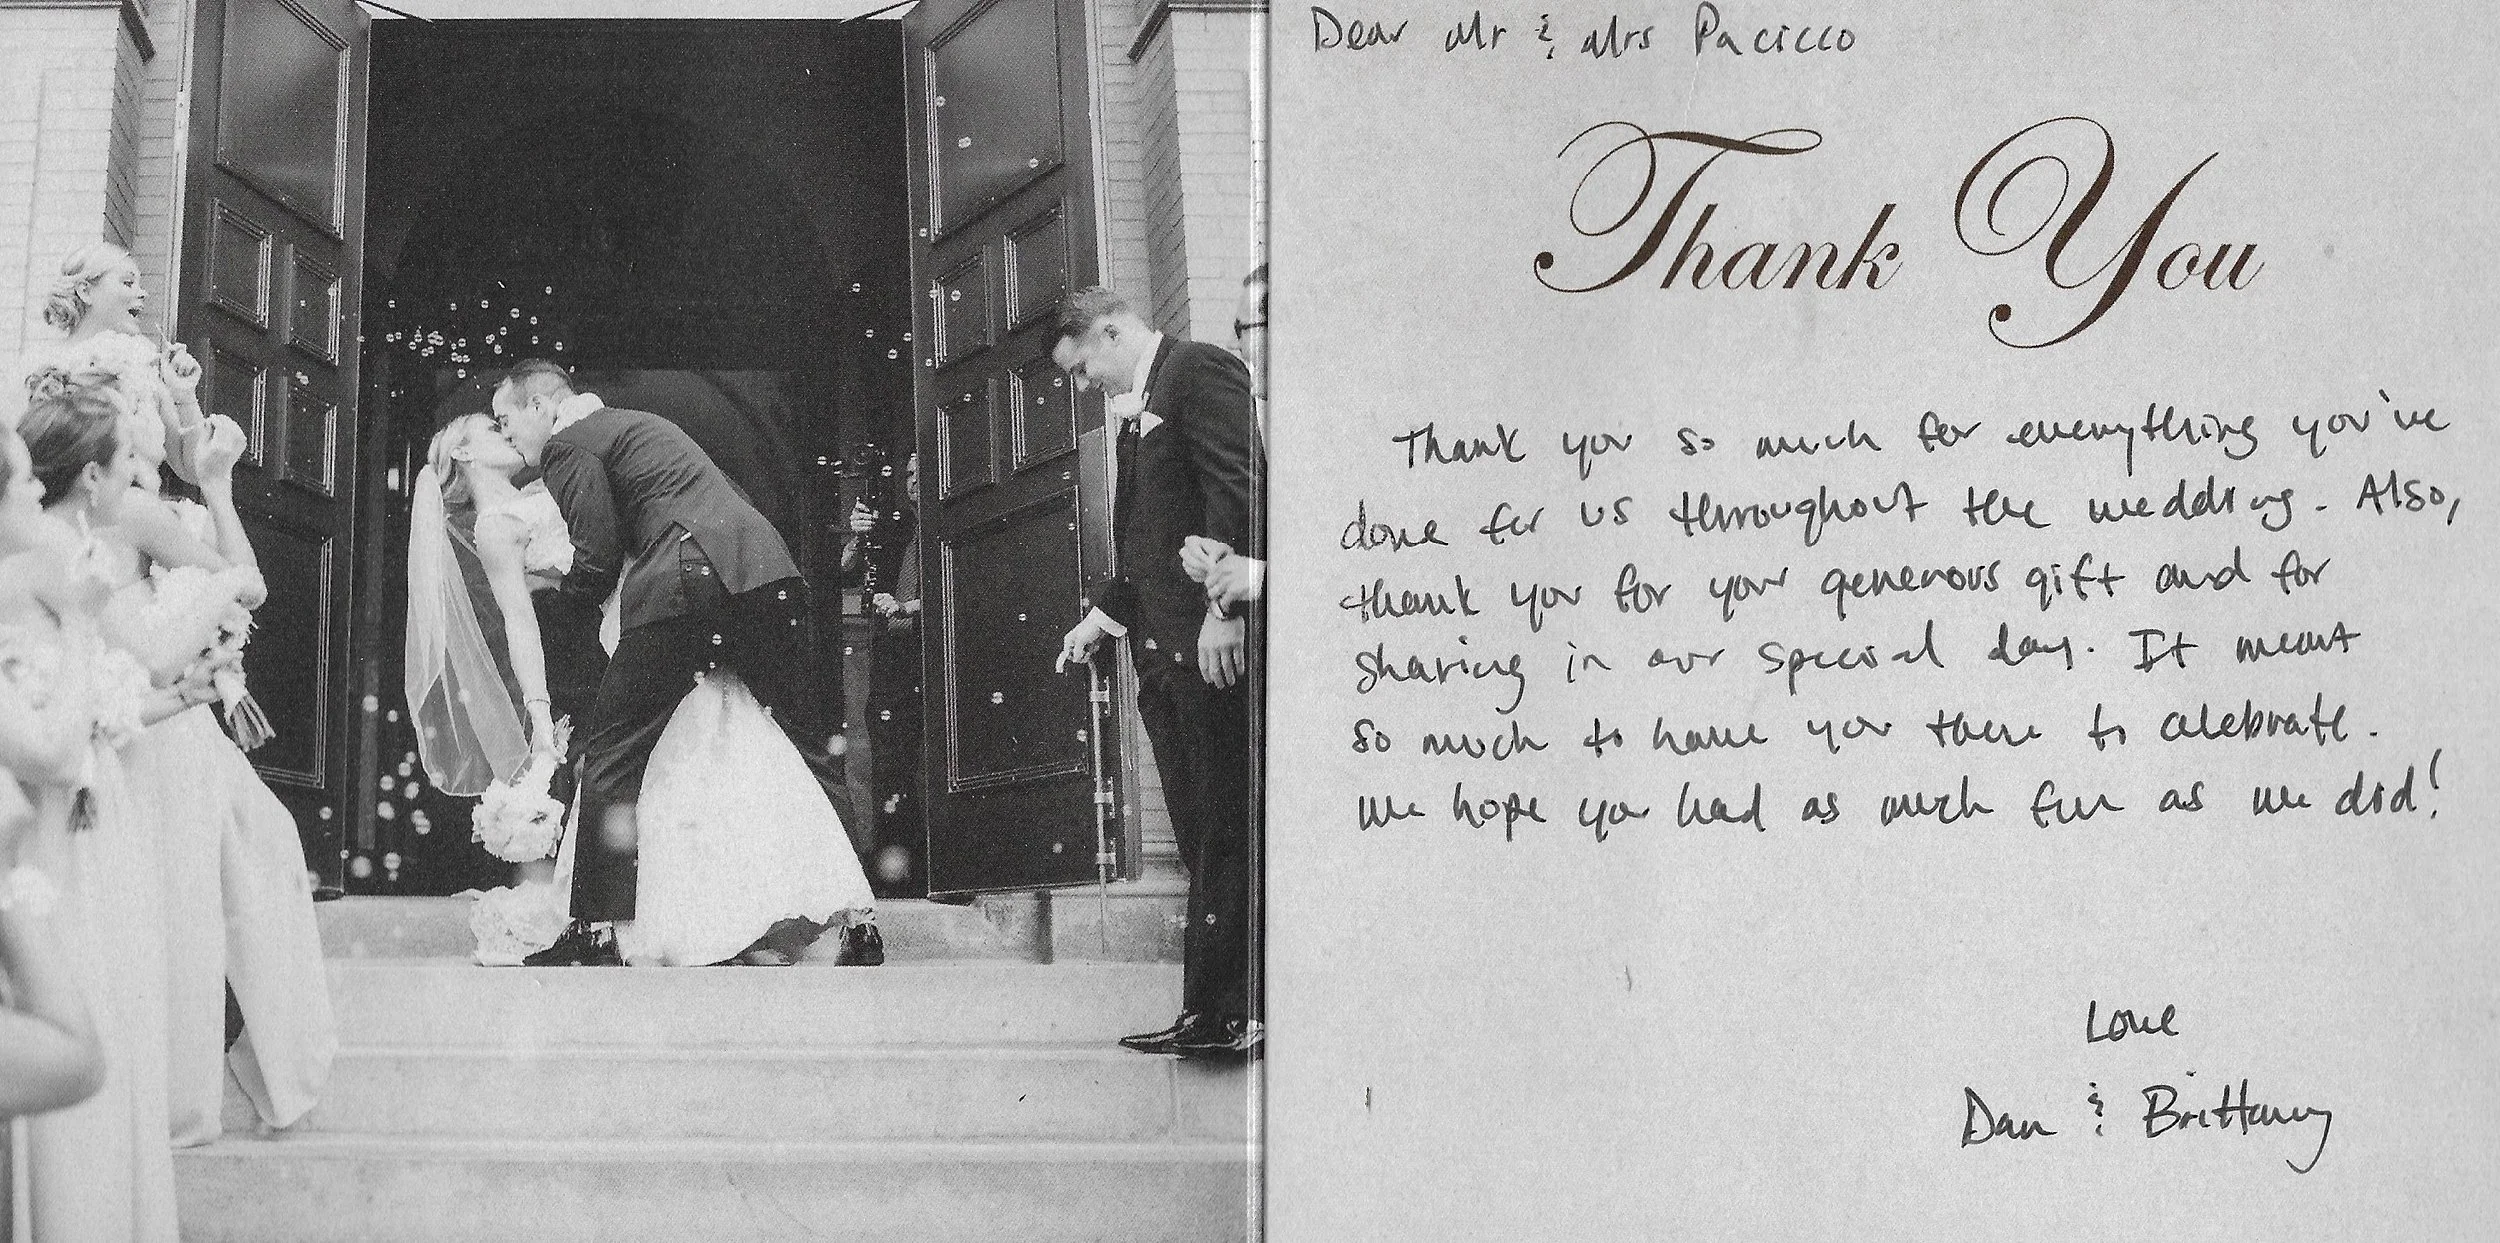 Dear Mr & Mrs Pacicco
Thank You
Thank you so much for everything you've
done for us throughout the wedding. Also,
thank you for your generous gift and for
sharing in our special day. It meant
so much to have you there to celebrate.
We hope you had as much fun as we did!
Love
Dan & Brittany